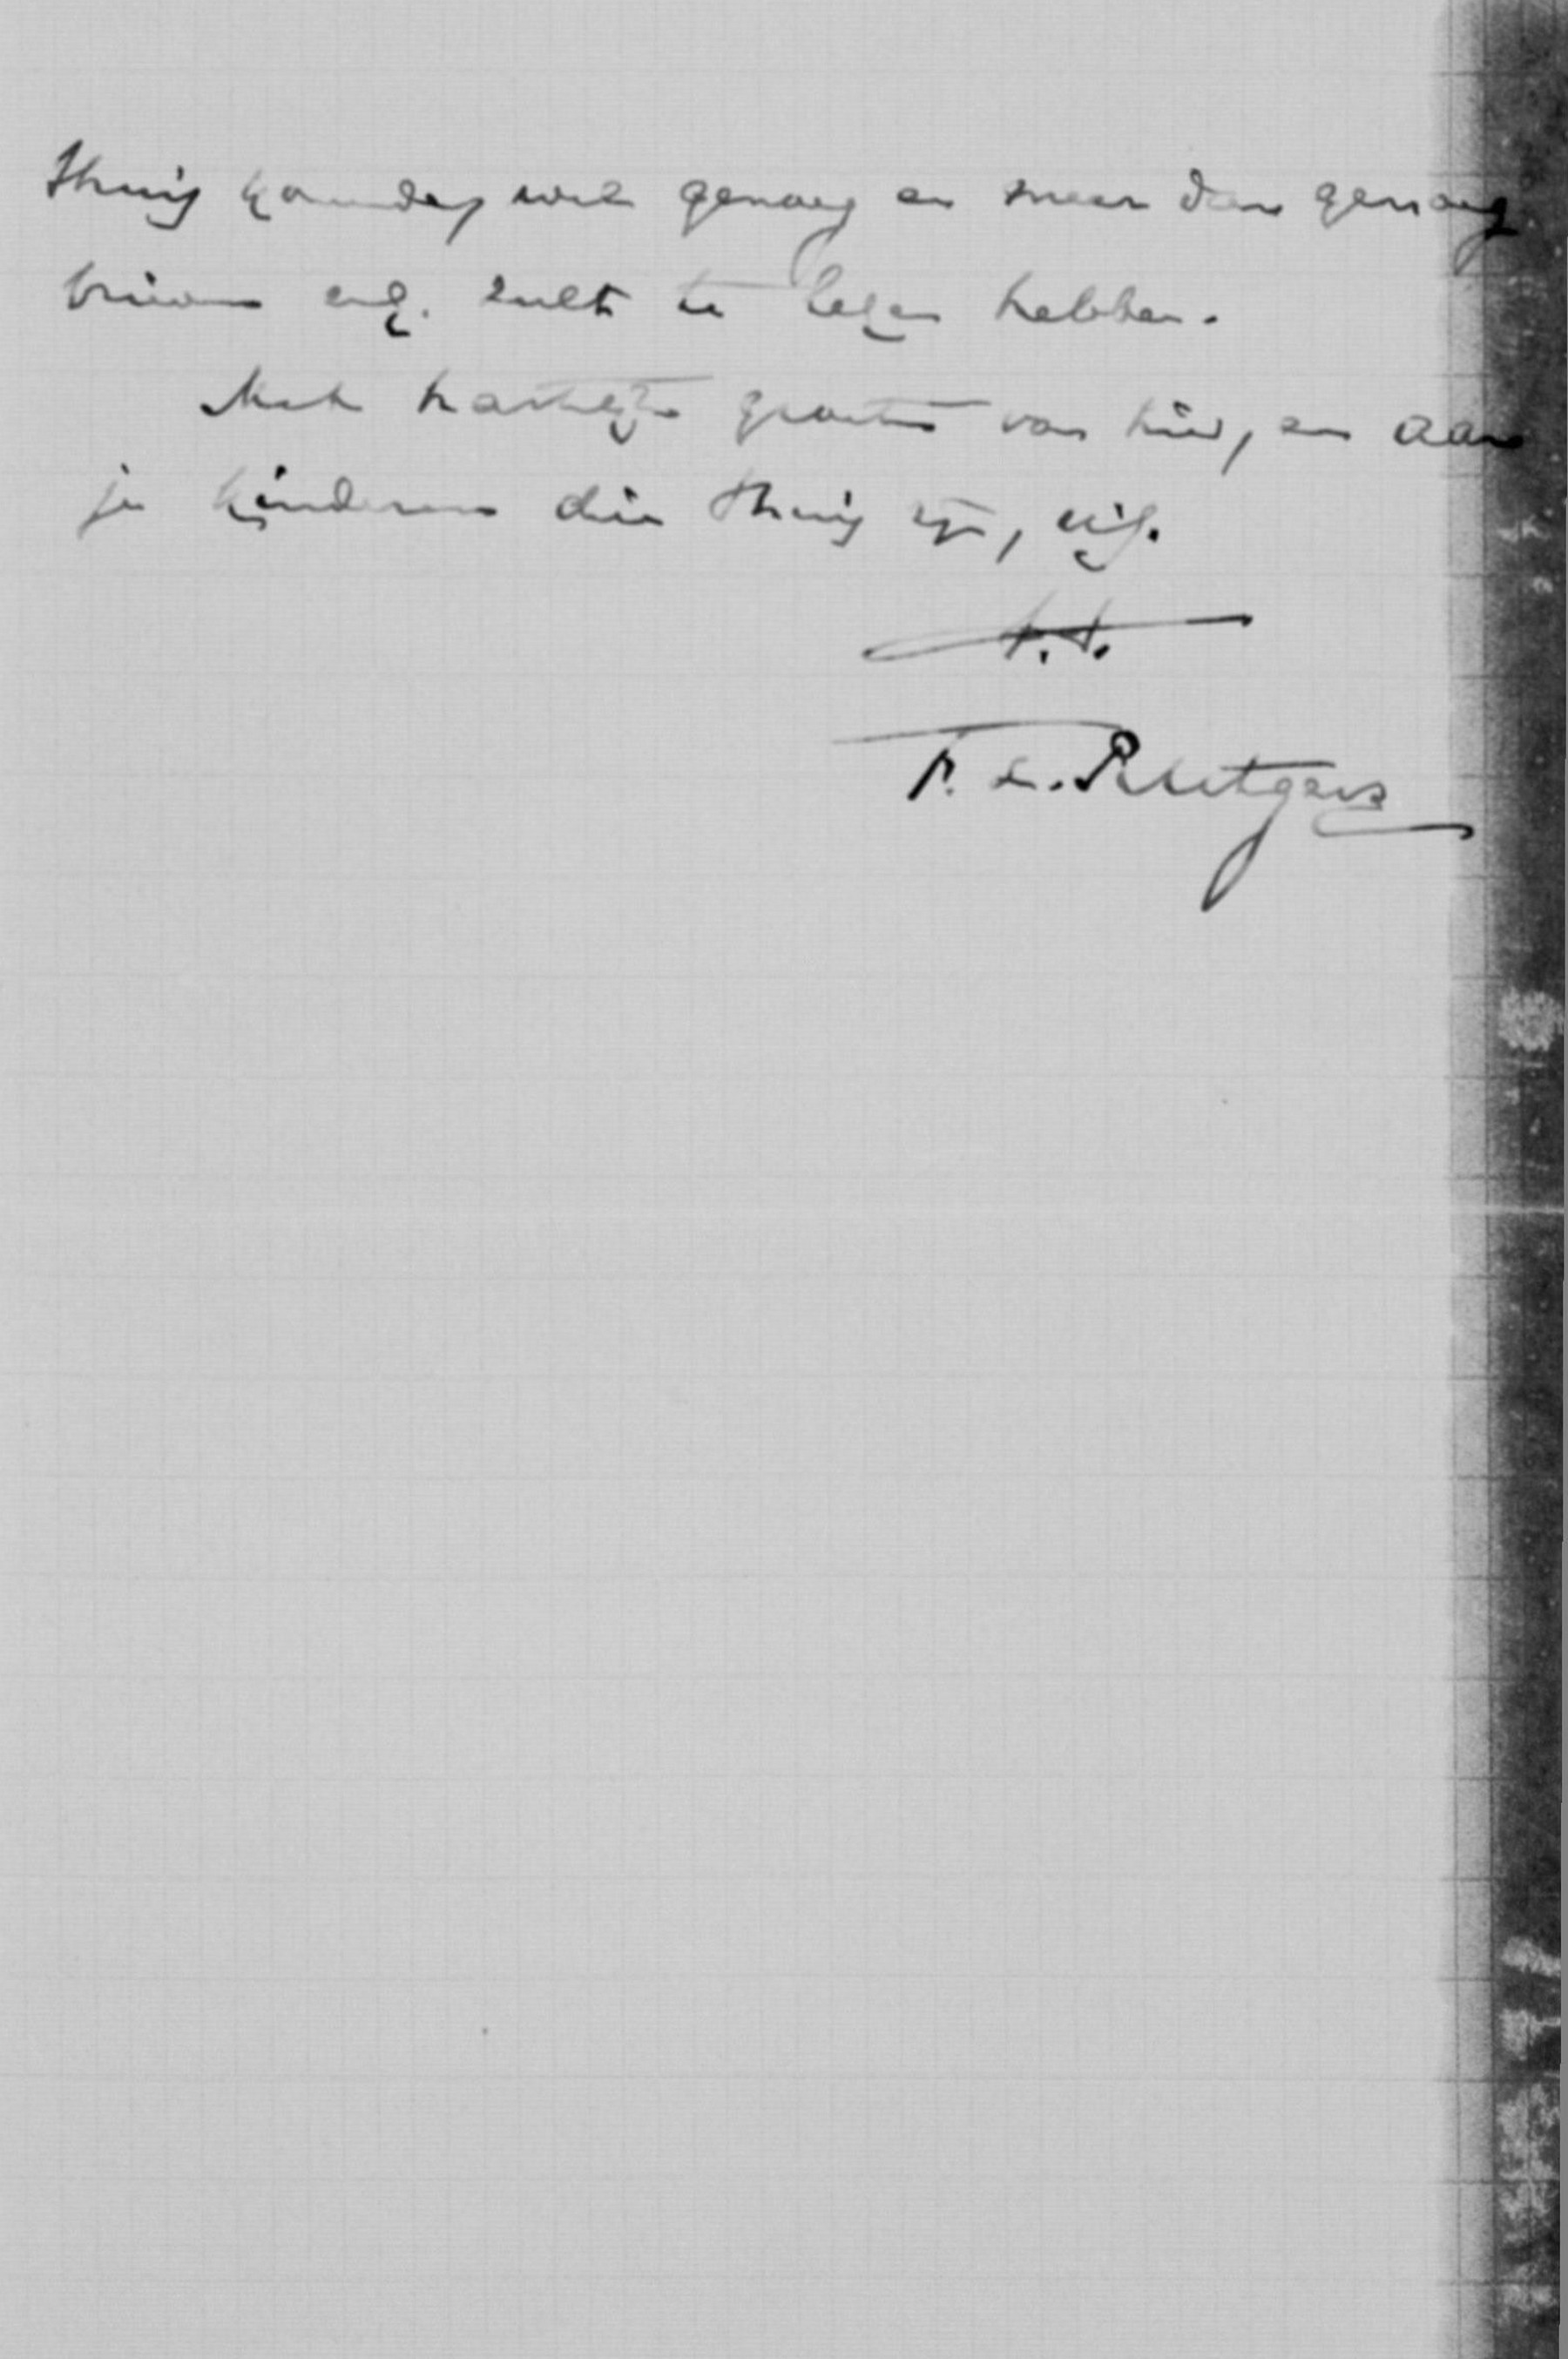 thuis komende, wel genoeg en meer dan genoeg
brieven enz. zult te lezen hebben.
Met hartelijke groeten van hier, en aan
je kinderen die thuis zijn, als
t.t.
F. L. Rutgers